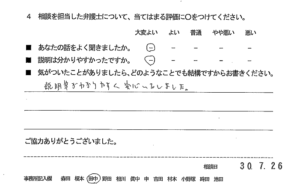 4 相談を担当した弁護士について、当てはまる評価に○をつけてください。
大変よい よい 普通 やや悪い 悪い
■ あなたの話をよく聞きましたか。
■ 説明は分かりやすかったですか。
■ 気がついたことがありましたら、どのようなことでも結構ですからお書きください。
説明等わかりやすく安心しました。
ご協力ありがとうございました。
相談日 30.7.26
事務所記入欄 森田 榎本 田中